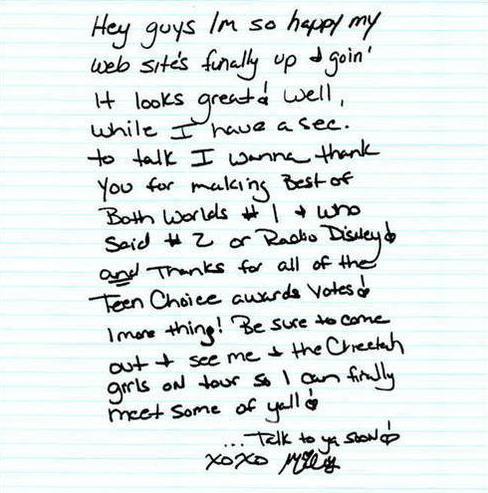 Hey guys Im so happy my
web site's finally up & goin'
It looks great! Well,
while I have a sec.
to talk I wanna thank
you for making Best of
Both Worlds # 1 & who
Said # 2 or Radio Disney!
and Thanks for all of the
Teen Choice awards Votes!
1 more thing! Be sure to come
out & see me & the Cheetah
girls on tour so I can finally
meet some of yall!
...Talk to ya soon!
xoxo Miley